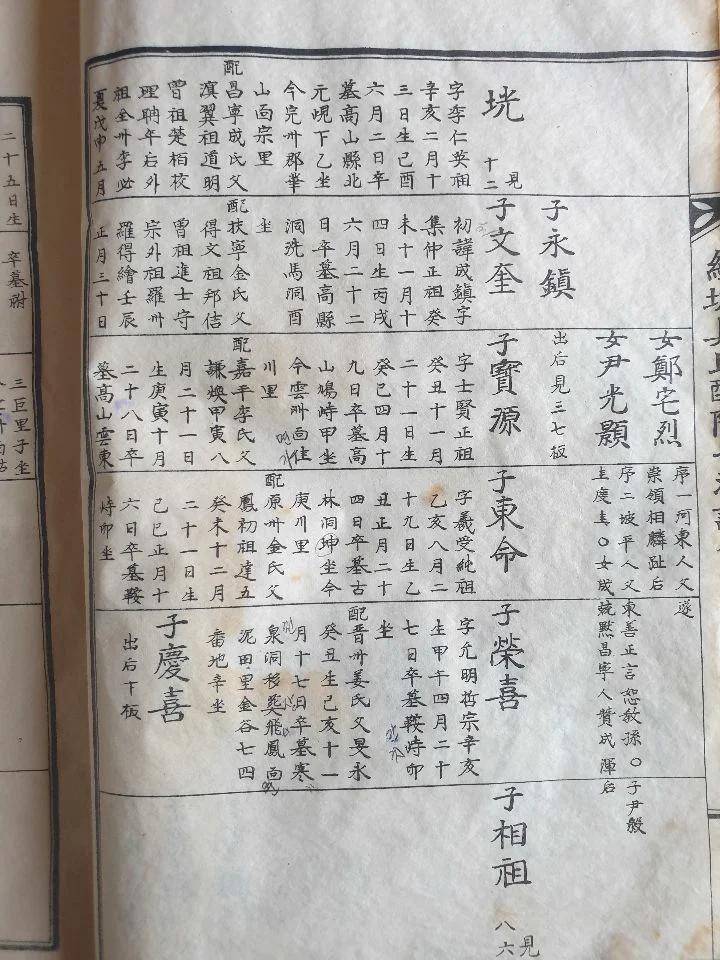 垙
見
十二
字李仁英祖
辛亥二月十
三日生己酉
六月二日卒
墓高山縣北
元峴下乙坐
今完州郡華
山面宗里
配昌寧成氏父
演翼祖道明
曾祖楚栢校
理聃年后外
祖全州李必
夏戊申五月
子永鎭
子文奎
初諱成鎭字
集仲正祖癸
未十一月十
四日生丙戌
六月二十二
日卒墓高縣
洞洗馬洞酉
坐
配扶寧金氏父
得文祖邦佶
曾祖進士守
宗外祖羅州
羅得繪壬辰
正月三十日
女鄭宅烈
女尹光顯
出后見三七板
子寶源
字士賢正祖
癸丑十一月
二十一日生
癸巳四月十
九日卒墓高
山鳩峙甲坐
今雲州面佳
川里
配嘉平李氏父
謙煥甲寅八
月二十一日
生庚寅十月
二十八日卒
墓高山雲東
序一河東人父
崇領相麟趾后
序二坡平人父
圭慶圭○女成
子東命
字羲受純祖
乙亥八月二
十九日生乙
丑正月二十
四日卒墓古
林洞坤坐今
庚川里
配原州金氏父
鳳初祖達五
癸未十二月
二十一日生
己巳正月十
六日卒墓鞍
峙卯坐
遂
東善正言恕敎孫○子尹毅
兢黙昌寧人贊成渾后
子榮喜
字允明哲宗辛亥
生甲午四月二十
七日卒墓鞍峙卯
坐
配晋州姜氏父旻永
癸丑生己亥十一
月十七日卒墓寒
泉洞移葬飛鳳面
泥田里金谷七四
番地辛坐
子慶喜
出后下板
子相祖
見
八六
二十五日生
卒墓附
三巨里子坐